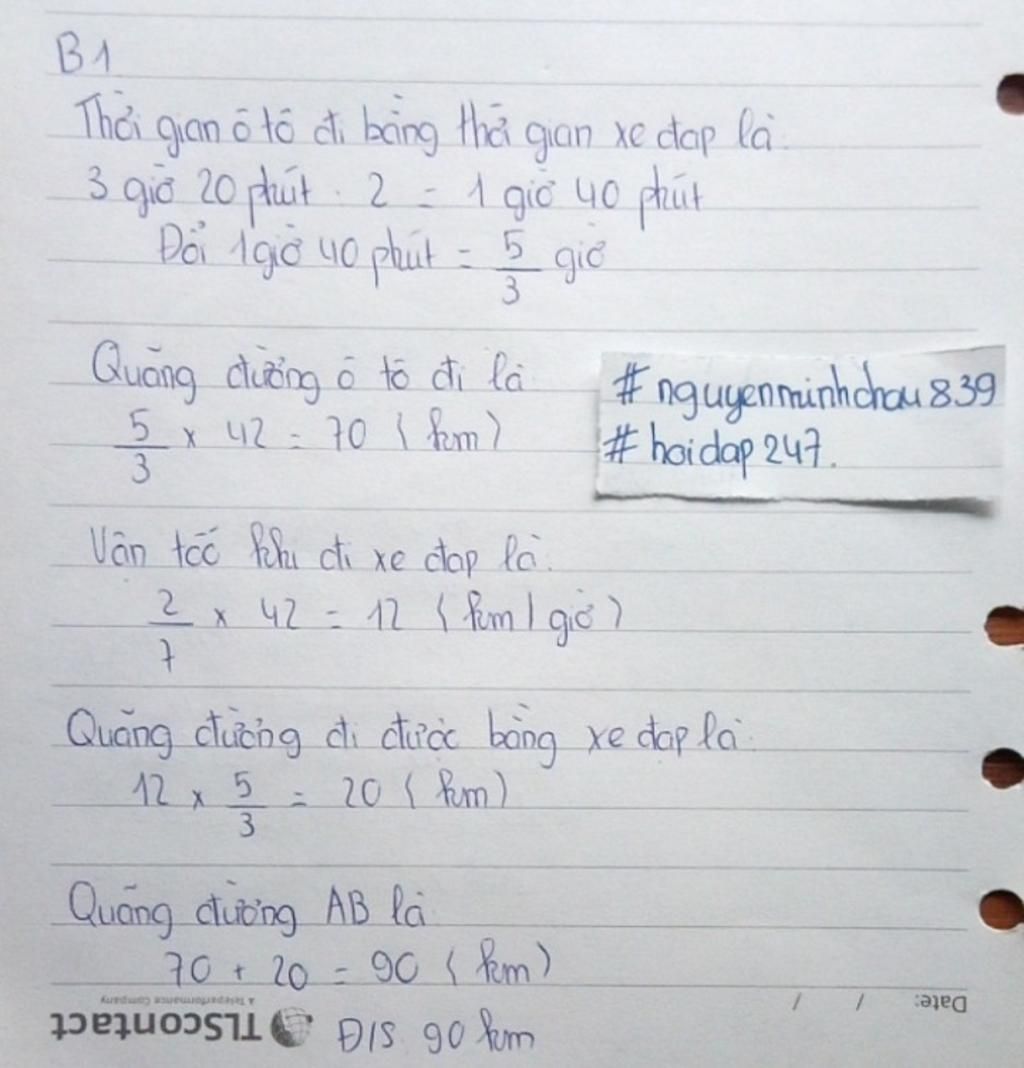 B1
Thời gian ô tô đi bằng thời gian xe đạp là:
3 giờ 20 phút : 2 = 1 giờ 40 phút
Đổi 1 giờ 40 phút = 5/3 giờ
Quãng đường ô tô đi là:
5/3 x 42 = 70 (km)
# nguyenminhchau839
# hoidap247.
Vận tốc khi đi xe đạp là:
2/7 x 42 = 12 (km/giờ)
Quãng đường đi được bằng xe đạp là:
12 x 5/3 = 20 (km)
Quãng đường AB là:
70 + 20 = 90 (km)
Đ/S: 90 km
Date: / /
TLScontact
A Teleperformance Company